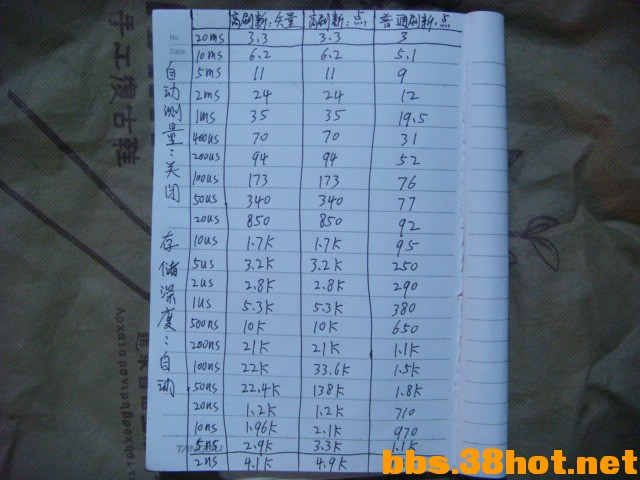 高刷新:矢量 高刷新:点 普通刷新:点
No. 20ms 3.3 3.3 3
Date 10ms 6.2 6.2 5.1
5ms 11 11 9
2ms 24 24 12
1ms 35 35 19.5
400us 70 70 31
200us 94 94 52
100us 173 173 76
50us 340 340 77
20us 850 850 92
10us 1.7K 1.7K 95
5us 3.2K 3.2K 250
2us 2.8K 2.8K 290
1us 5.3K 5.3K 380
500ns 10K 10K 650
200ns 21K 21K 1.1K
100ns 22K 33.6K 1.5K
50ns 22.4K 138K 1.8K
20ns 1.2K 1.2K 710
10ns 1.96K 2.1K 970
5ns 2.9K 3.3K 1.1K
2ns 4.1K 4.9K
自动测量:关闭
存储深度:自动
手工復古鞋
bbs.38hot.net